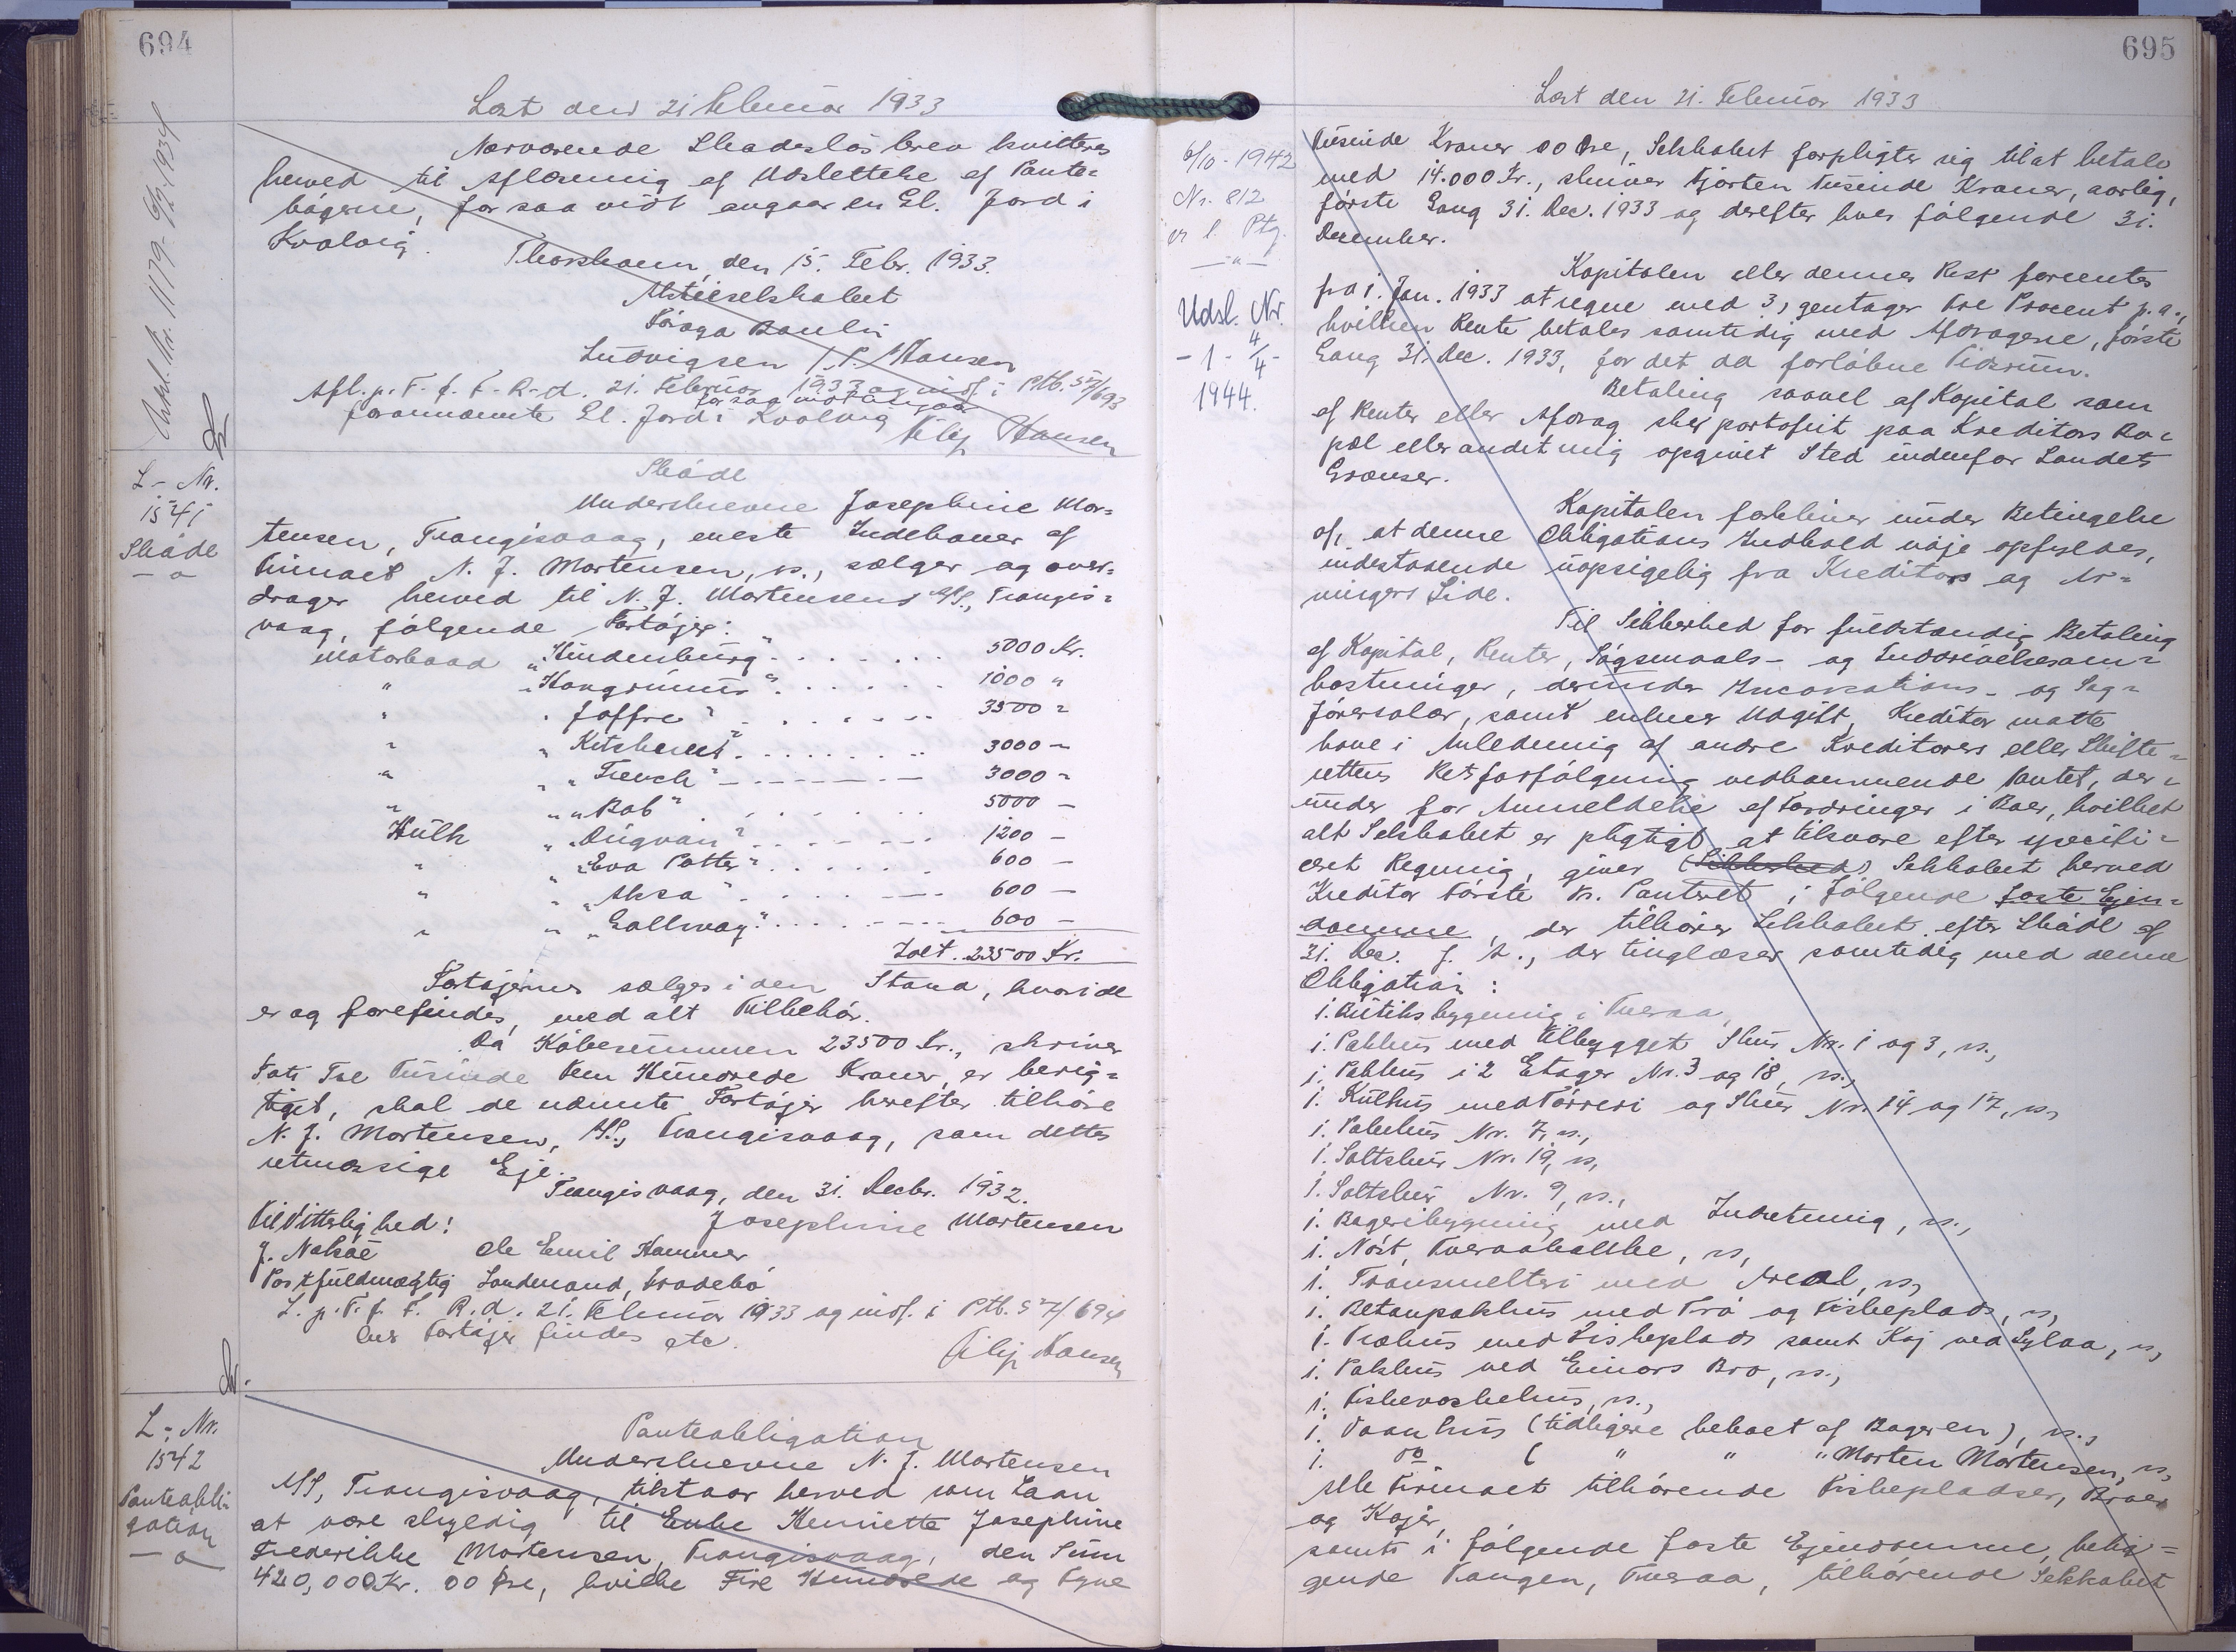 694
Læst den 21 Februar 1933
Nærværende Skadesløsbrev kvitteres
herved til Aflæsning af Udslettelse af Pante=
bøgerne, for saa vidt angaar en El. Jord i
Kvalvig.
Thorshavn, den 15. Febr. 1933.
Aktieselskabet
Føroya Banki
Ludvigsen / P. Hansen
Afl. p. T. f. F. R. d. 21. Februar 1933 og indf. i Ptb. S 7/693
for saa vidt angaar
forannævnte El. Jord i Kvalvig
Filip Hansen
L - Nr.
1541
Skøde
Skøde
Underskrevne Josephine Mor=
tensen, Trangisvaag, eneste Indehaver af
Firmaet N. J. Mortensen, ss., sælger og over=
drager herved til N. J. Mortensens A/S., Trangis=
vaag, følgende Fartøjer:
Motorbaad "Hindenburg" . . . . . 5000 Kr.
" "Kongrumur" . . . . . 1000 "
" "Joffre" . . . . . 3500 "
" "Kitchener" . . . . . 3000 -
" "French" . . . . . 3000 -
" "Rob" . . . . . 5000 -
Hulk "Dugvan" . . . . . 1200 -
" "Eva Potter" . . . . . 600 -
" "Aksa" . . . . . 600 -
" "Gallway" . . . . . 600 -
Ialt. 23500 Kr.
Fartøjerne sælges i den Stand, hvori de
er og forefindes, med alt Tilbehør.
Da Købesummen 23500 Kr., skriver
Toti Tre Tusinde Fem Hundrede Kroner, er berig=
tiget, skal de nævnte Fartøjer herefter tilhøre
N. J. Mortensen, A/S., Trangisvaag, som dettes
retmæssige Eje.
Trangisvaag, den 31. Decbr. 1932.
Til Vitterlighed: Josephine Mortensen
J. Nolsøe Ole Emil Hammer
Postfuldmægtig Landmand, Frodebø
L. p. T. f. F. R. d. 21. Februar 1933 og indf. i Ptb. S 7/694
Filip Hansen
L - Nr.
1542
Panteobli-
gation
Panteobligation
Underskrevne N. J. Mortensen
A/S, Trangisvaag, tilstaar herved som Laan
at være skyldig til Enke Henriette Josephine
Frederikke Mortensen, Trangisvaag, den Sum
420,000 Kr. 00 Øre, hvilke Fire Hundrede og Tyve
695
Læst den 21. Februar 1933
Nr. 812
Udsl. Nr.
- 1 - 4/4 -
1944.
Tusinde Kroner 00 Øre, Selskabet forpligter sig til at betale
med 14.000 Kr., skriver fjorten Tusinde Kroner, aarlig,
første Gang 31. Dec. 1933 og derefter hver følgende 31.
December.
Kapitalen eller dennes Rest forrentes
fra 1. Jan. 1933 at regne med 3, gentager tre Procent p. a.,
hvilken Rente betales samtidig med Afdragene, første
Gang 31. Dec. 1933, for det da forløbne Tidsrum.
Betaling saavel af Kapital som
af Renter eller Afdrag sker portofrit paa Kreditors Bo=
pæl eller andet mig opgivet Sted indenfor Landets
Grænser.
Kapitalen forbliver under Betingelse
af, at denne Obligations Indhold nøje opfyldes,
indestaaende uopsigelig fra Kreditors og Ar=
vingers Side.
Til Sikkerhed for fuldstændig Betaling
af Kapital, Renter, Søgsmaals- og Inddrivelsesom=
kostninger, derunder Incassations- og Sag=
førersalær, samt enhver Udgift, Kreditor maatte
have i Anledning af andre Kreditorers eller Skifte=
rettens Retsforfølgning vedkommende Pantet, der=
under for Anmeldelse af Fordringer i Boer, hvilket
alt Selskabet er pligtigt at tilsvare efter specifi=
ceret Regning, giver (Sikkerhed) Selskabet herved
Kreditor første Kr. Panteret i følgende faste Ejen=
domme, der tilhører Selskabet efter Skøde af
31. Dec. f. A., der tinglæses samtidig med denne
Obligation:
1. Butiksbygning i Tveraa,
1. Pakhus med tilbygget Skur Nr. 1 og 3, ss.,
1. Pakhus i 2 Etager Nr. 3 og 18, ss.,
1. Kulhus med Tørreri og Skur Nr. 14 og 17, ss,
1. Pakhus Nr. 7, ss.,
1. Saltskur Nr. 19, ss,
1. Saltskur Nr. 9, ss.,
1. Bageribygning med Indretning, ss.,
1. Nøst, Tveraabakke, ss,
1. Transmelteri med Areal, ss,
1. Betonpakhus med Trø og Fiskeplads, ss,
1. Træhus med Fiskeplads samt Kaj ved Sylaa, ss,
1. Pakhus ved Einars Bro, ss.,
1. Fiskevaskehus, ss.,
1. Vaanhus (tidligere beboet af Bageren), ss.,
1. do ( " " " Morten Mortensen, ss,
Alle Firmaet tilhørende Fiskepladser, Broer
og Kajer,
samt i følgende faste Ejendomme, belig=
gende Vangen, Tveraa, tilhørende Selskabet